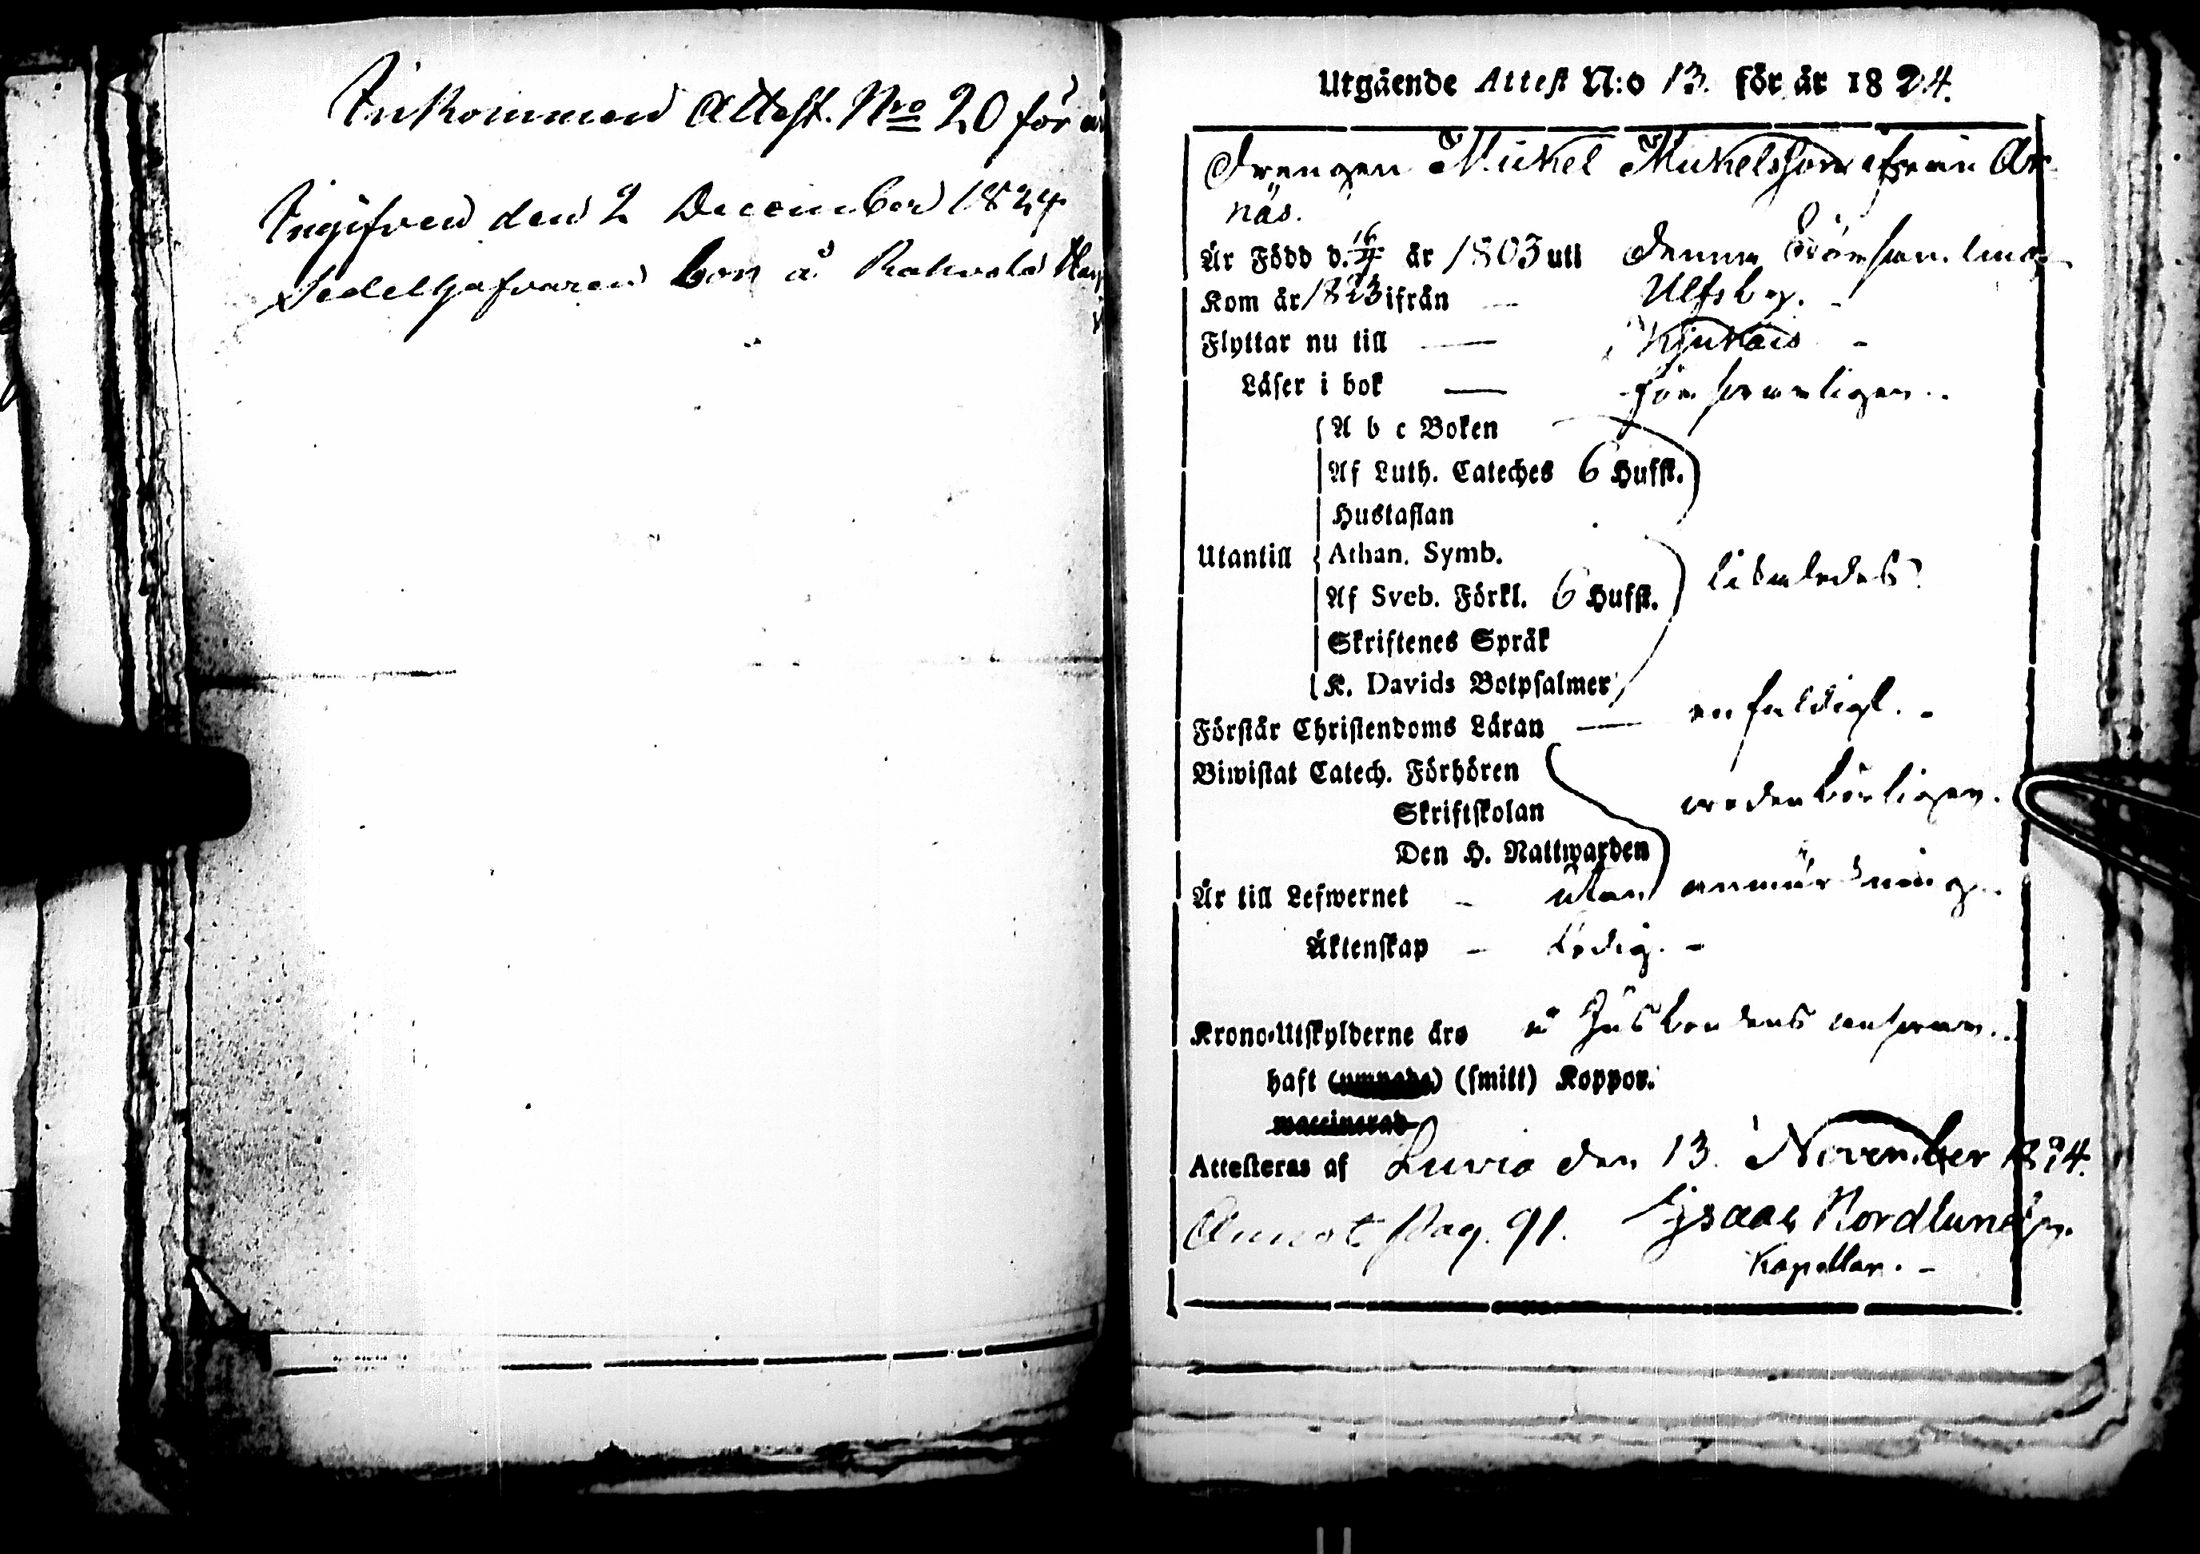 Inkommen Attest. Nro 20 för
Ingifven den 2 December 1824
Sedelhafvaren bor å
Utgående Attest N:o 13. för år 1824.
Drengen Mickel Mickelsson ifrån Ar-
näs.
Är Född d. 16/4 år 1803 uti denna Församling
Kom år 1823 ifrån — Ulfsby. -
Flyttar nu till — Kjukais -
Läser i bok — försvarligen..
A b c Boken
Af Luth. Cateches 6 Hufst.
Hustaflan
Utantill Athan. Symb. likaledes.
Af Sveb. Förkl. 6 Hufst.
Skriftenes Språk
K. Davids Botpsalmer
Förstår Christendoms Läran — enfaldigt. -
Biwistat Catech. Förhören
Skriftskolan vederbörligen.
Den H. Nattwarden
Är till Lefwernet - utan anmärkning.
Äktenskap - Ledig. -
Krono-Utskylderne äro å Husbondens ansvar..
haft (smitt) Koppor.
waccinerad
Attesteras af Luvia den 13. November 1824.
Annot. Pag. 91. Isaac Nordlund
Kapellan. -